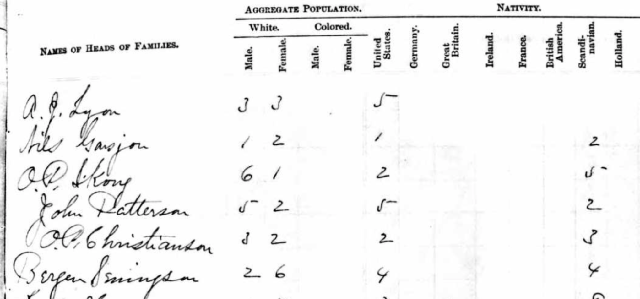 AGGREGATE POPULATION. NATIVITY.
NAMES OF HEADS OF FAMILIES. White. Colored.
Male. Female. Male. Female. United States. Germany. Great Britain. Ireland. France. British America. Scandinavian. Holland.
A. J. Lyon 3 3 5
Nils 1 2 1 2
O. P. Skong 6 1 2 5
John Patterson 5 2 5 2
O. P. Christianson 3 2 2 3
Bergen 2 6 4 4